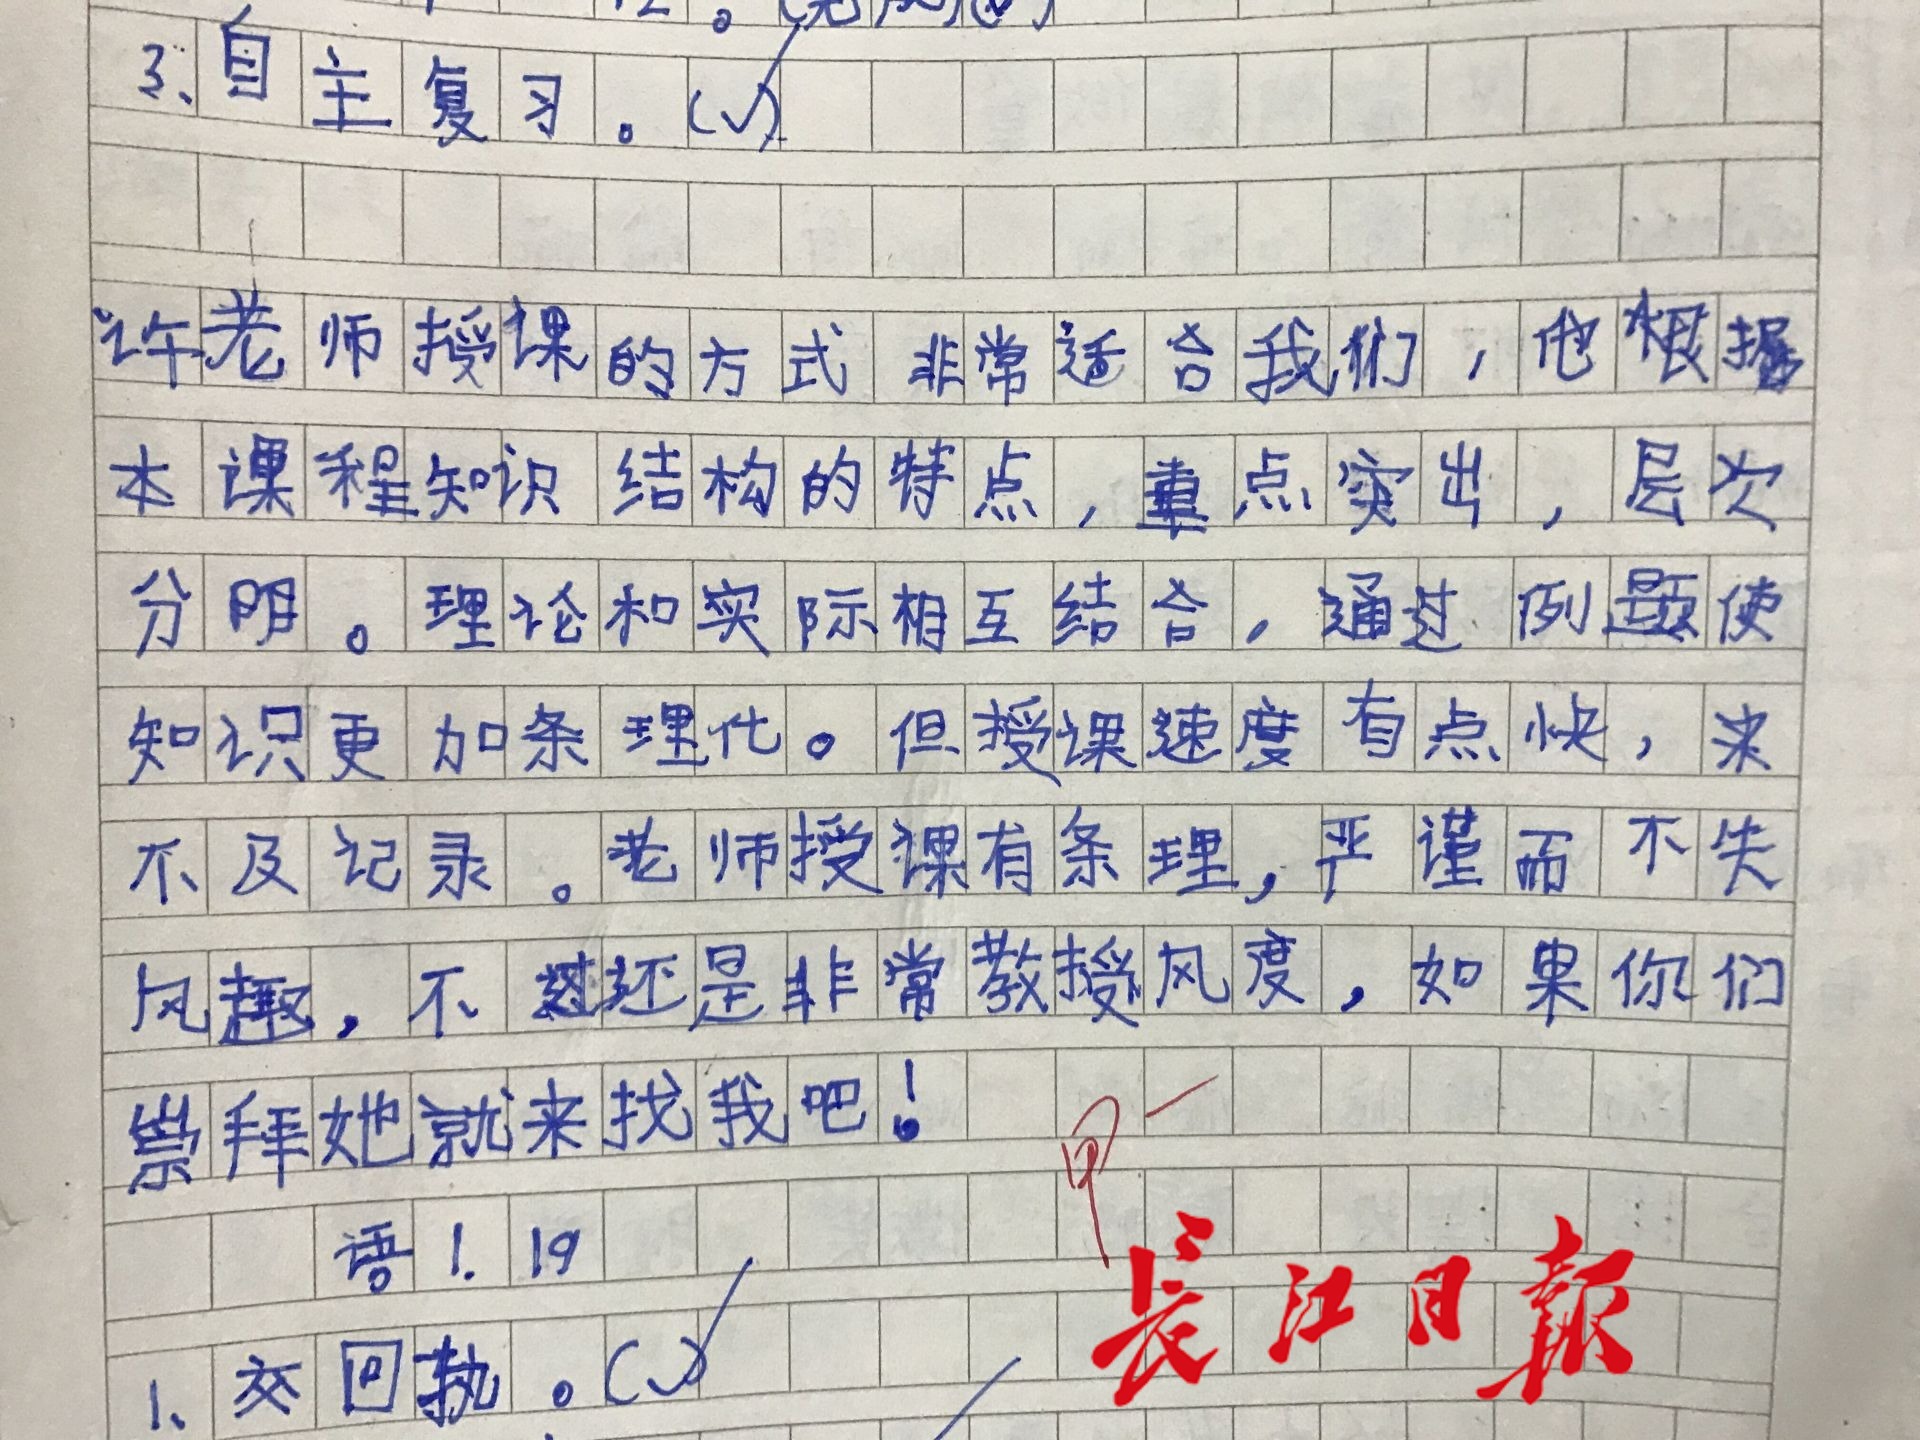 3、自主复习。(✓)
许老师授课的方式非常适合我们，他根据
本课程知识结构的特点，重点突出，层次
分明。理论和实际相互结合，通过例题使
知识更加条理化。但授课速度有点快，来
不及记录。老师授课有条理，严谨而不失
风趣，不过还是非常教授风度，如果你们
崇拜她就来找我吧！
甲
语1.19
长江日报
1、交回执。(✓)